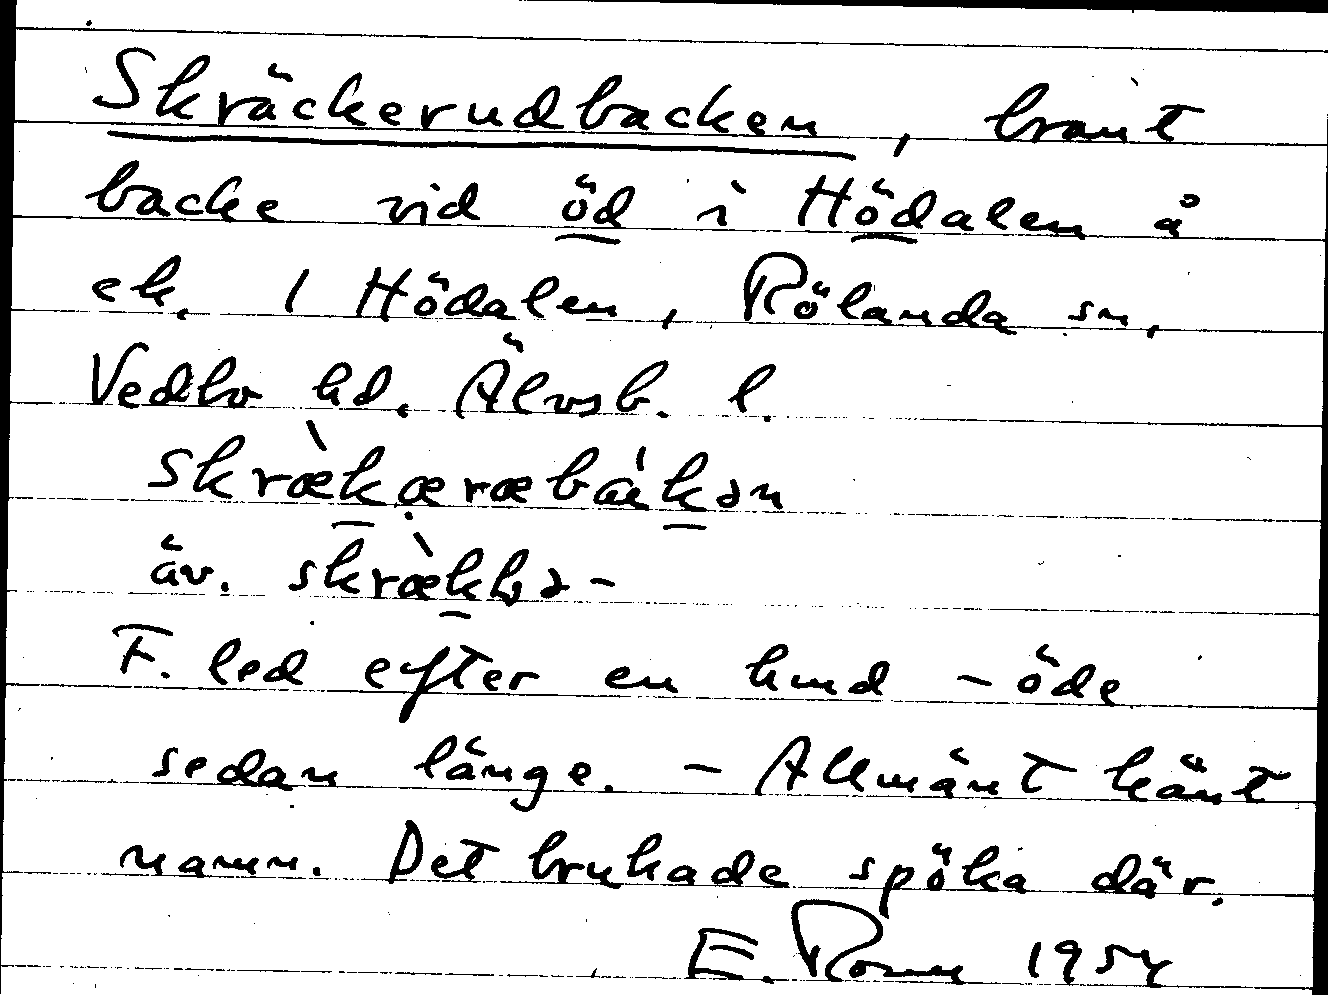 Skräckerudbacken, brant
backe vid öd i Hödalen å
ek. 1 Hödalen, Rölanda sn,
Vedbo hd. Älvsb. l.
skræ̀kæræbák̲ən
äv. skræ̀k̲hə-
F. led efter en hund - öde
sedan länge. - Allmänt känt
namn. Det brukade spöka där.
E. 1954